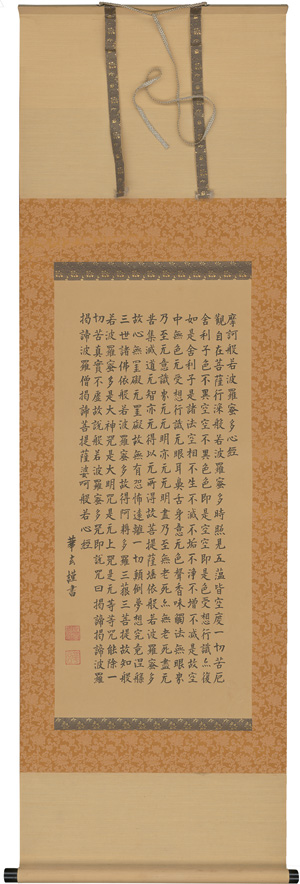 摩訶般若波羅蜜多心經
觀自在菩薩行深般若波羅蜜多時照見五蘊皆空度一切苦厄
舍利子色不異空空不異色色即是空空即是色受想行識亦復
如是舍利子是諸法空相不生不滅不垢不淨不增不減是故空
中無色无受想行識无眼耳鼻舌身意无色聲香味觸法無眼界
乃至无意識界无无明亦无无明盡乃至無老死亦無老死盡无
苦集滅道无智亦无得以无所得故菩提薩埵依般若波羅蜜多
故心無罣礙无罣礙故無有恐怖遠離一切顛倒夢想究竟涅槃
三世諸佛依般若波羅蜜多故得阿耨多羅三藐三菩提故知般
若波羅蜜多是大神咒是大明咒是无上咒是无等等咒能除一
切苦真實不虛故說般若波羅蜜多咒即說咒曰揭諦揭諦波羅
揭諦波羅僧揭諦菩提薩婆訶般若心經
謹書